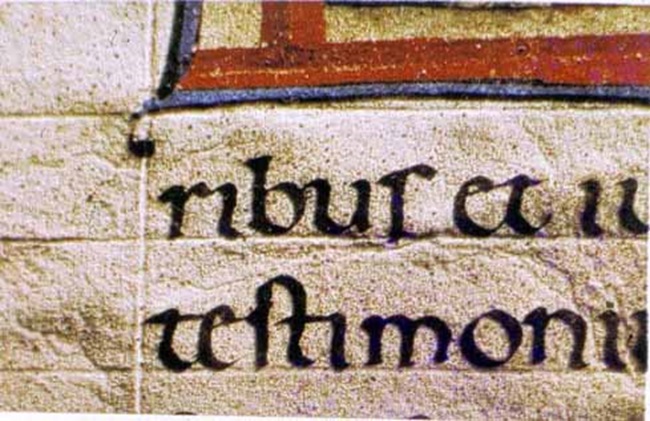 ribuſ et iu
teſtimoni